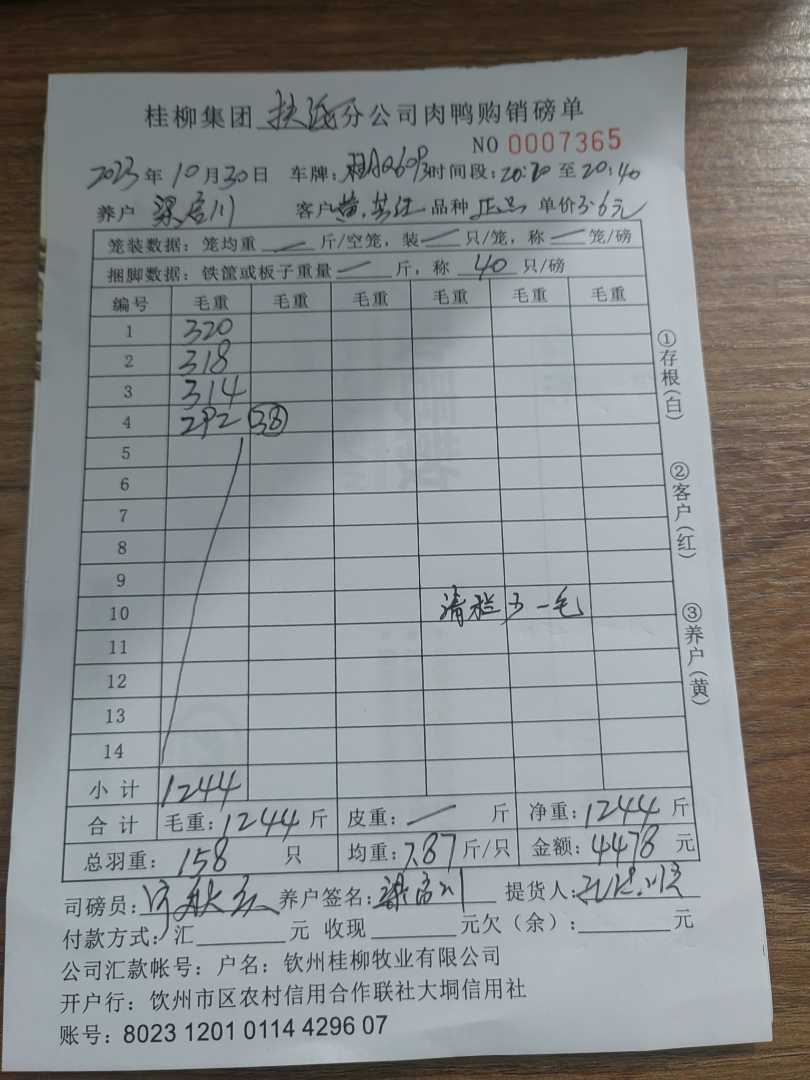 桂柳集团 分公司肉鸭购销磅单
NO 0007365
2023年10月30日 车牌: 时间段:20:20至20:40
养户 客户 品种 正品 单价3.6元
笼装数据:笼均重 — 斤/空笼,装 — 只/笼,称 — 笼/磅
捆脚数据:铁筐或板子重量 — 斤,称 40 只/磅
编号 毛重 毛重 毛重 毛重 毛重 毛重
1 320
2 318
3 314
4 292 38
5
6
7
8
9
10 清栏 一毛
11
12
13
14
小计 1244
合计 毛重:1244斤 皮重: — 斤 净重:1244斤
总羽重:158只 均重:7.87斤/只 金额:4478元
司磅员: 养户签名: 提货人:
付款方式:汇 元 收现 元欠(余): 元
公司汇款帐号:户名:钦州桂柳牧业有限公司
开户行:饮州市区农村信用合作联社大垌信用社
账号:8023 1201 0114 4296 07
①存根(白)
②客户(红)
③养户(黄)